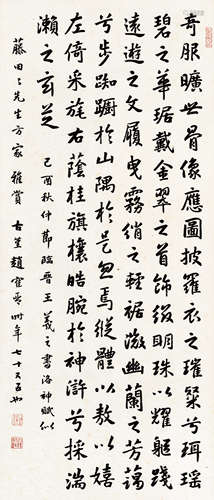 奇服曠世骨像應圖披羅衣之璀粲兮珥瑤
碧之華琚戴金翠之首飾綴明珠以耀軀踐
遠遊之文履曳霧綃之輕裾微幽蘭之芳藹
兮步踟躕於山隅於是忽焉縱體以敖以嬉
左倚采旄右蔭桂旗攘皓腕於神滸兮採湍
瀨之玄芝 己酉秋仲節臨晉王羲之書洛神賦以
藤田先生方家雅賞 古 趙 年七十又五